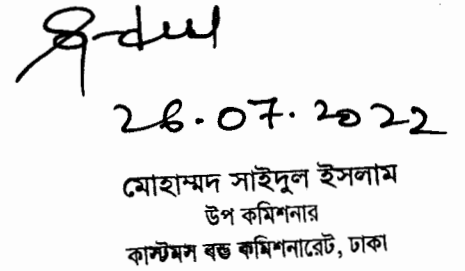 26.07.2022
মোহাম্মদ সাইদুল ইসলাম
উপ কমিশনার
কাস্টমস বন্ড কমিশনারেট, ঢাকা